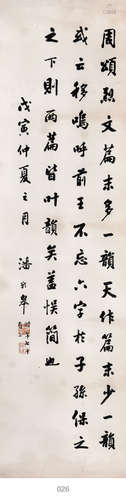 周頌烈文篇末多一韻天作篇末少一韻
或云移嗚呼前王不忘六字於子孫保之
之下則兩篇皆叶韻矣蓋誤簡也
戊寅仲夏之月 潘齡皋
026